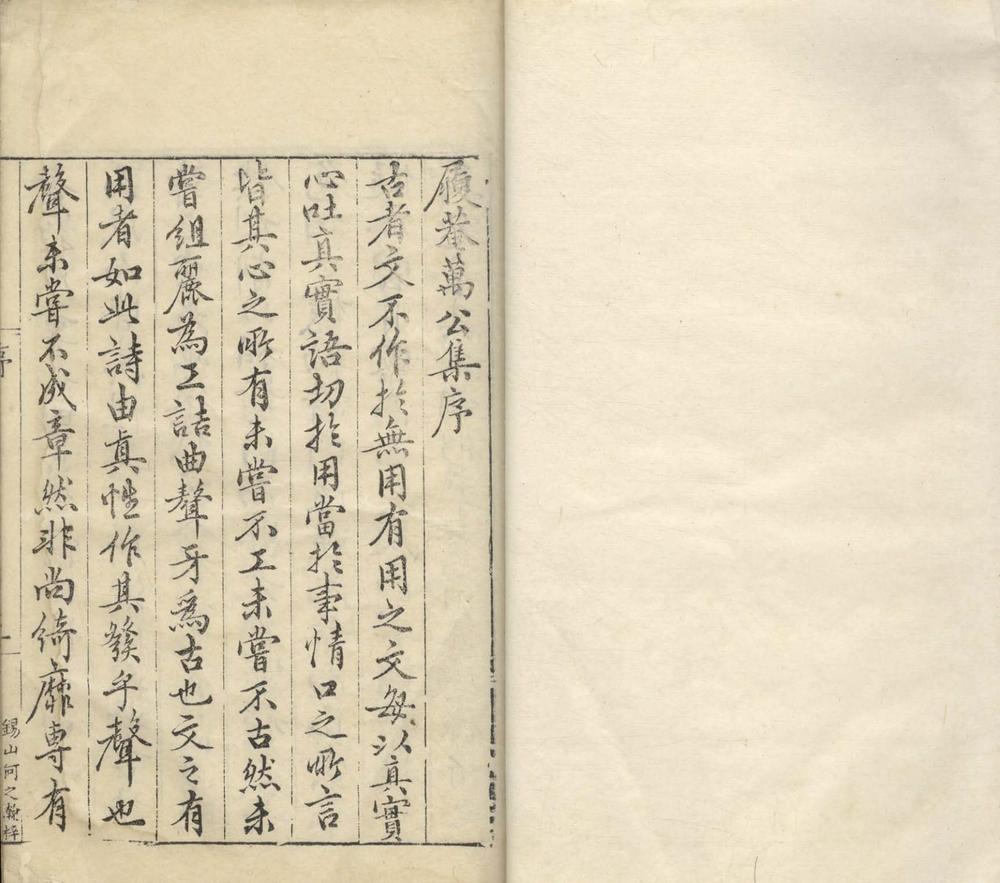 履菴萬公集序
古者文不作於無用有用之文每以真實
心吐真實語切於用當於事情口之所言
皆其心之所有未嘗不工未嘗不古然未
嘗組麗為工詰曲聱牙為古也文之有
用者如此詩由真性作其發乎聲也
聲未嘗不成章然非尚綺靡專有
序
一
錫山何之梓